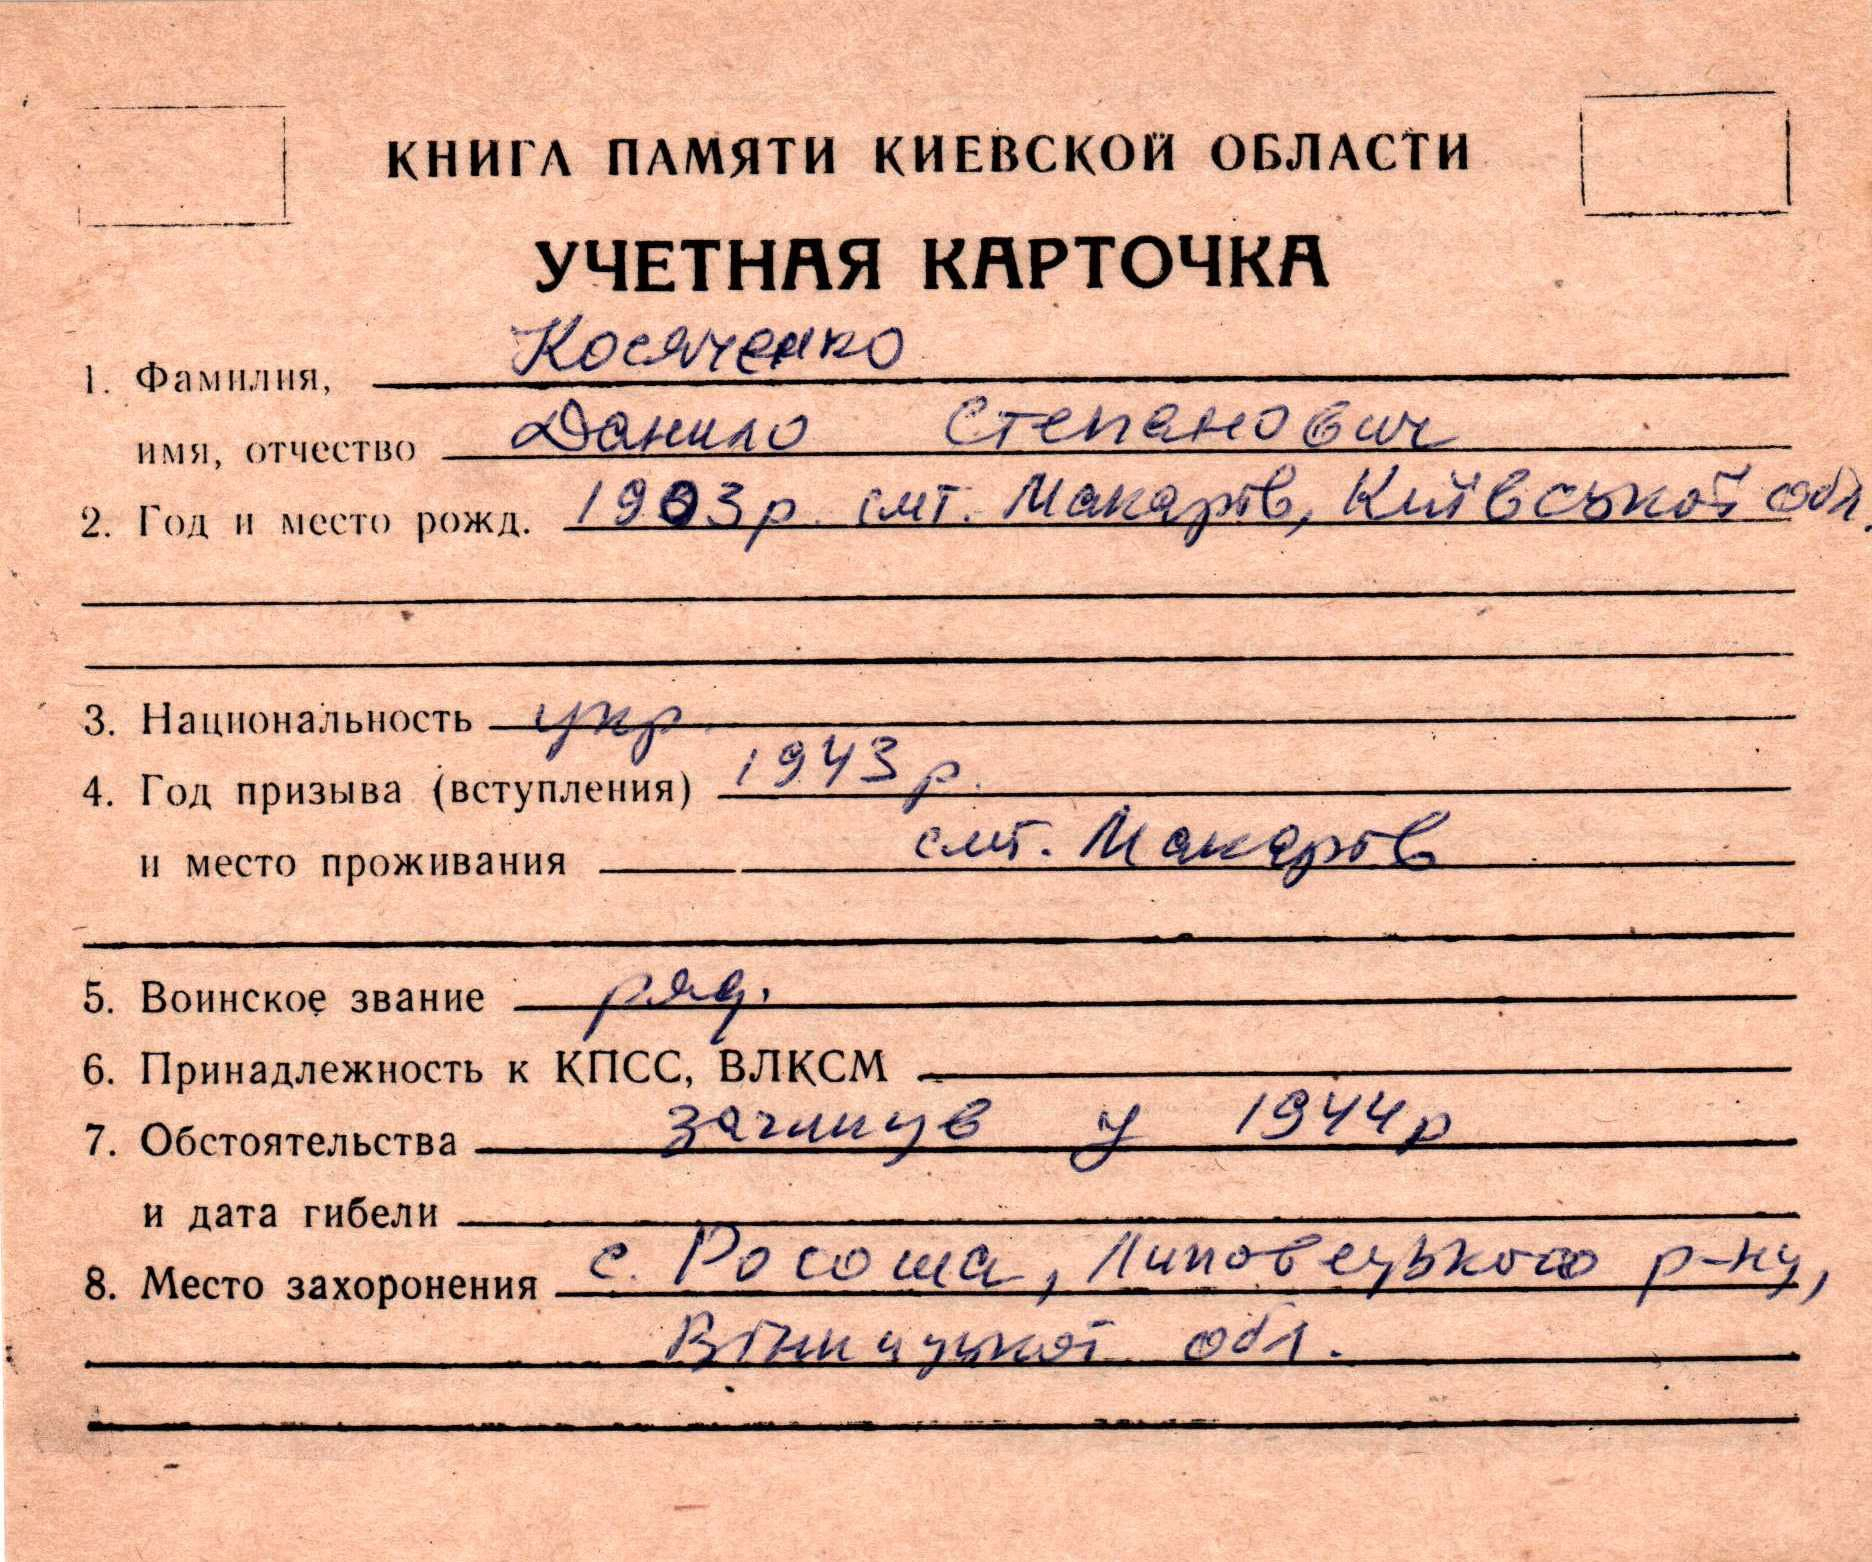 КНИГА ПАМЯТИ КИЕВСКОЙ ОБЛАСТИ
УЧЕТНАЯ КАРТОЧКА
1. Фамилия, Косяченко
имя, отчество Данило Степанович
2. Год и место рожд. 1903р. смт. Макарів, Київської обл.
3. Национальность укр.
4. Год призыва (вступления) 1943 р.
и место проживания смт. Макарів
5. Воинское звание ряд.
6. Принадлежность к КПСС, ВЛКСМ
7. Обстоятельства загинув у 1944р
и дата гибели
8. Место захоронения с. Росоша, Липовецького р-ну,
Вінницької обл.